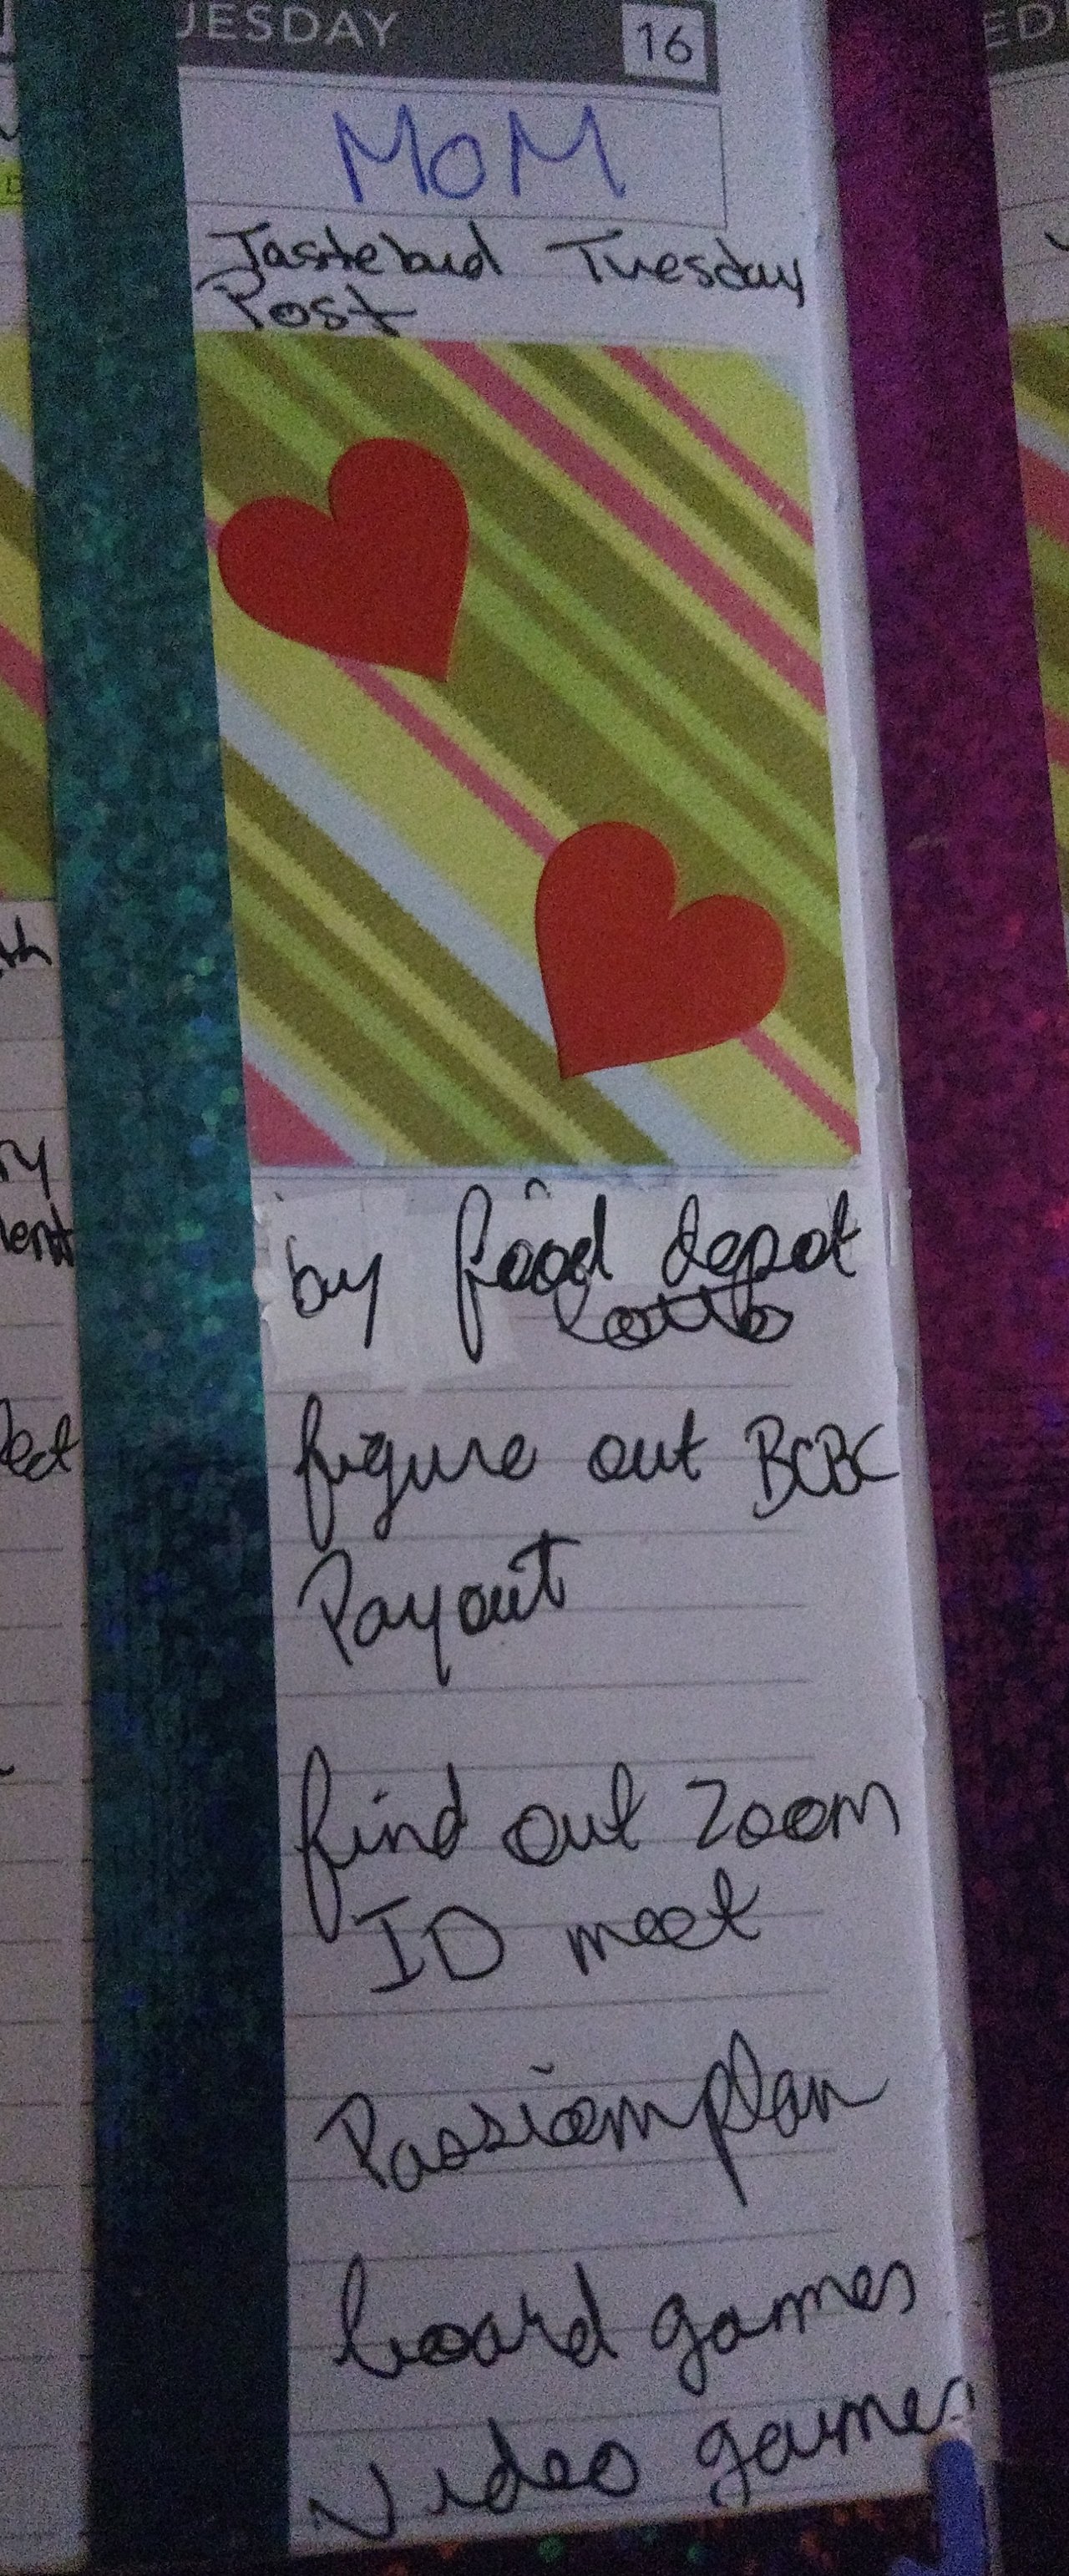 UESDAY 16
MoM
Tastebud Tuesday
Post
by food depot
Lotto
figure out BCBC
Payout
find out Zoom
ID meet
Passion plan
board games
Video games